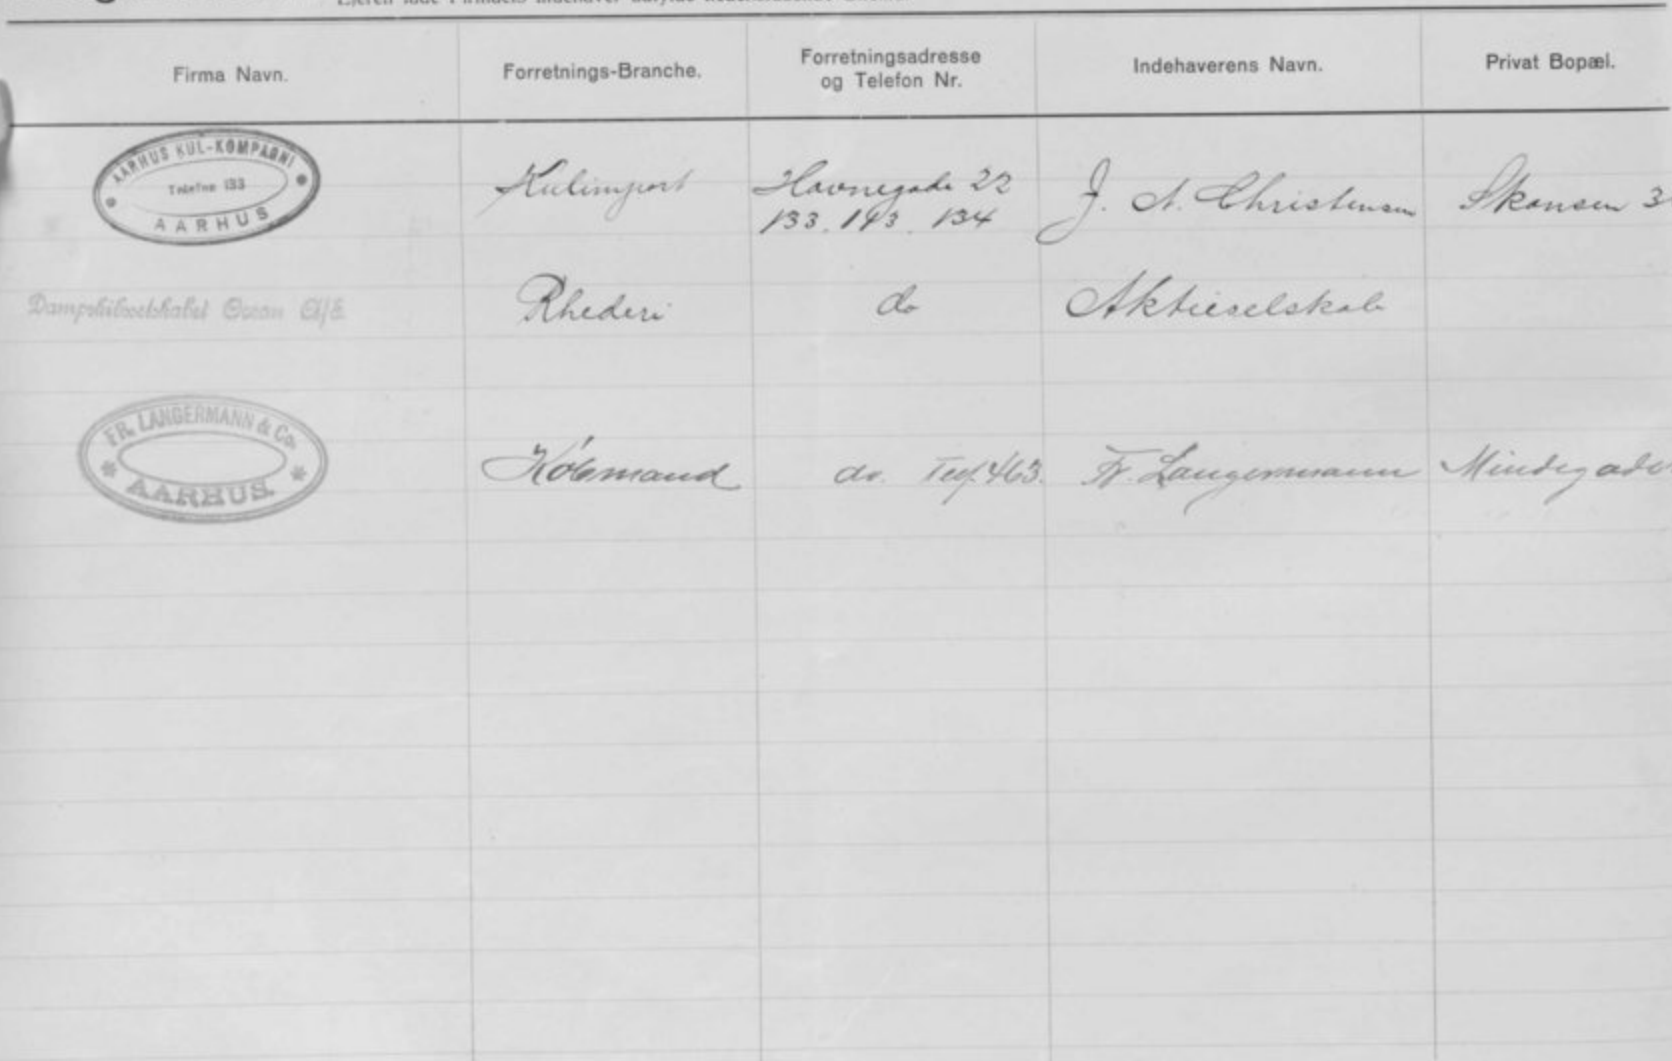 Firma Navn. Forretnings-Branche. Forretningsadresse og Telefon Nr. Indehaverens Navn. Privat Bopæl.
AARHUS KUL-KOMPAGNI
Telefon 133
AARHUS
Kulimport Havnegade 22 J. A. Christensen Skansen 3
133. 143. 134
Dampskibsselskabet Ocean A/S. Rhederi do Aktieselskab
FR. LANGERMANN & Co.
AARHUS.
Købmand do. Telf. 463. Fr. Langermann Mindegade